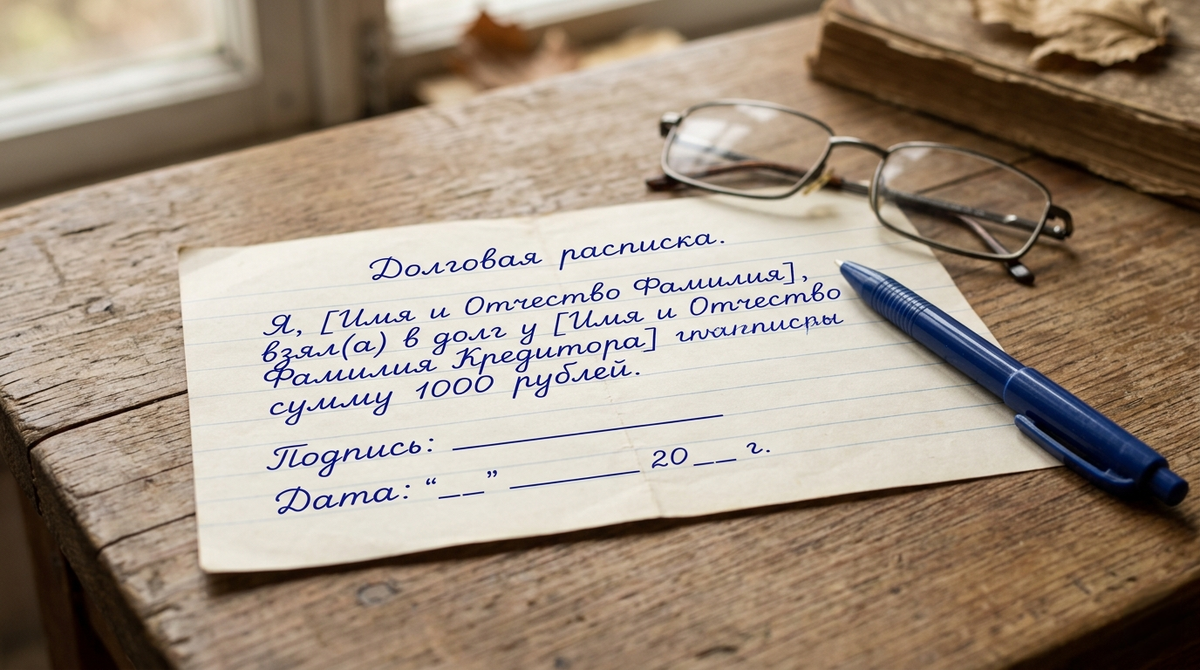 Долговая расписка.
Я, [Имя и Отчество Фамилия],
взял(а) в долг у [Имя и Отчество
Фамилия Кредитора]
сумму 1000 рублей.
Подпись: ____________
Дата: “__” ________ 20__ г.